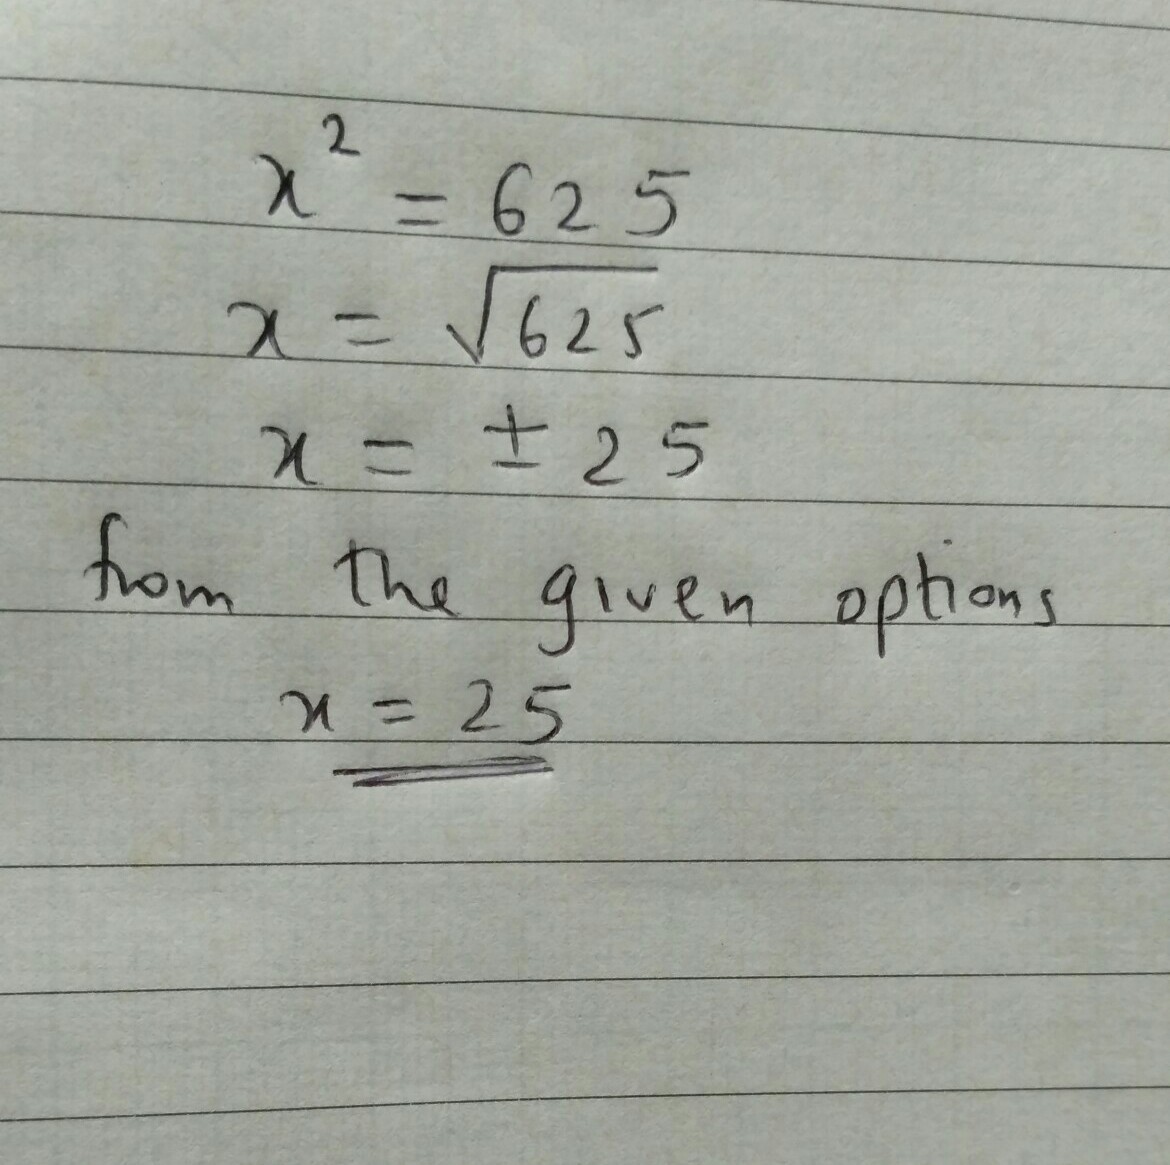 x² = 625
x = √625
x = ± 25
from the given options
x = 25